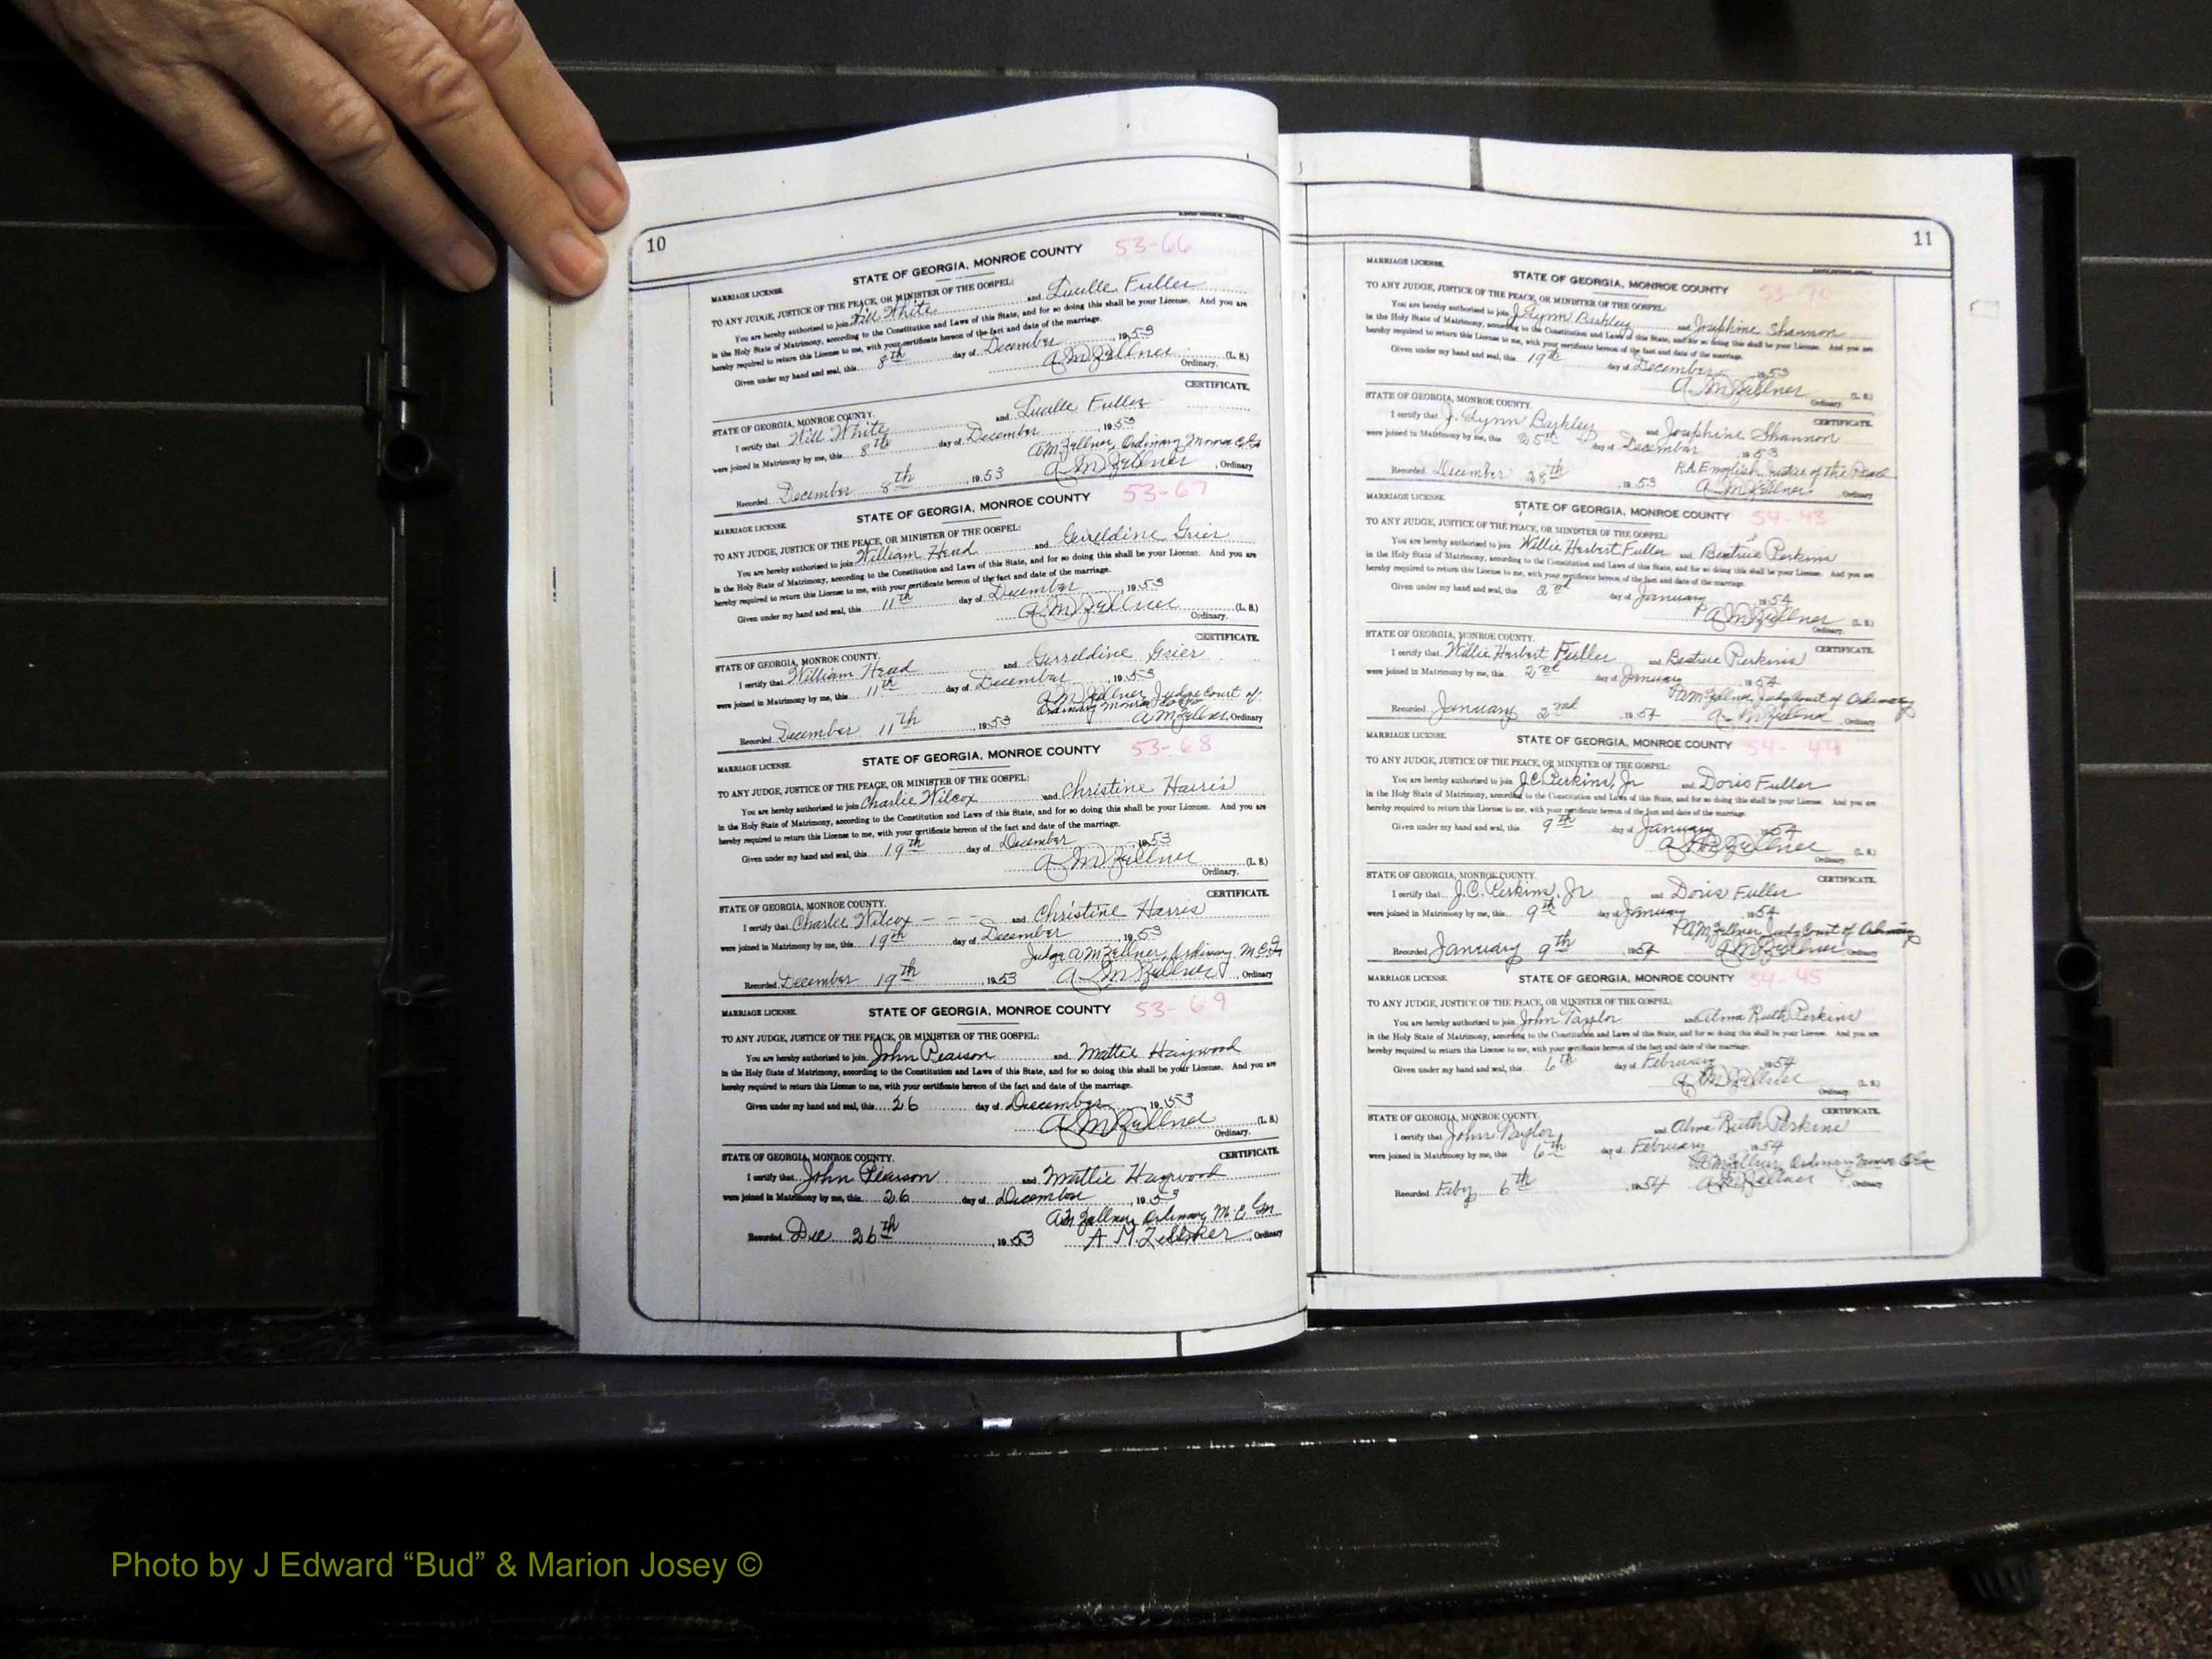 10
STATE OF GEORGIA, MONROE COUNTY 53-66
MARRIAGE LICENSE.
TO ANY JUDGE, JUSTICE OF THE PEACE, OR MINISTER OF THE GOSPEL:
You are hereby authorized to join Will White and Lucille Fuller
in the Holy State of Matrimony, according to the Constitution and Laws of this State, and for so doing this shall be your License. And you are
hereby required to return this License to me, with your certificate hereon of the fact and date of the marriage.
Given under my hand and seal, this 8th day of December, 1953
A M Zellner (L. S.)
Ordinary.
CERTIFICATE.
STATE OF GEORGIA, MONROE COUNTY.
I certify that Will White and Lucille Fuller
were joined in Matrimony by me, this 8th day of December, 1953
A M Zellner, Ordinary Monroe Co Ga
Recorded December 8th, 1953 A M Zellner, Ordinary
STATE OF GEORGIA, MONROE COUNTY 53-67
MARRIAGE LICENSE.
TO ANY JUDGE, JUSTICE OF THE PEACE, OR MINISTER OF THE GOSPEL:
You are hereby authorized to join William Head and Gerreldine Grier
in the Holy State of Matrimony, according to the Constitution and Laws of this State, and for so doing this shall be your License. And you are
hereby required to return this License to me, with your certificate hereon of the fact and date of the marriage.
Given under my hand and seal, this 11th day of December, 1953
A M Zellner (L. S.)
Ordinary.
CERTIFICATE.
STATE OF GEORGIA, MONROE COUNTY.
I certify that William Head and Gerreldine Grier
were joined in Matrimony by me, this 11th day of December, 1953
A M Zellner Judge Court of
Ordinary Monroe Co
Recorded December 11th, 1953 A M Zellner, Ordinary
STATE OF GEORGIA, MONROE COUNTY 53-68
MARRIAGE LICENSE.
TO ANY JUDGE, JUSTICE OF THE PEACE, OR MINISTER OF THE GOSPEL:
You are hereby authorized to join Charlie Wilcox and Christine Harris
in the Holy State of Matrimony, according to the Constitution and Laws of this State, and for so doing this shall be your License. And you are
hereby required to return this License to me, with your certificate hereon of the fact and date of the marriage.
Given under my hand and seal, this 19th day of December, 1953
A M Zellner (L. S.)
Ordinary.
CERTIFICATE.
STATE OF GEORGIA, MONROE COUNTY.
I certify that Charlie Wilcox - - - and Christine Harris
were joined in Matrimony by me, this 19th day of December, 1953
Judge A M Zellner, Ordinary M C Ga
Recorded December 19th, 1953 A M Zellner, Ordinary
MARRIAGE LICENSE. STATE OF GEORGIA, MONROE COUNTY 53-69
TO ANY JUDGE, JUSTICE OF THE PEACE, OR MINISTER OF THE GOSPEL:
You are hereby authorized to join John Pearson and Mattie Haywood
in the Holy State of Matrimony, according to the Constitution and Laws of this State, and for so doing this shall be your License. And you are
hereby required to return this License to me, with your certificate hereon of the fact and date of the marriage.
Given under my hand and seal, this 26 day of December, 1953
A M Zellner (L. S.)
Ordinary.
STATE OF GEORGIA, MONROE COUNTY. CERTIFICATE.
I certify that John Pearson and Mattie Haywood
were joined in Matrimony by me, this 26 day of December, 1953
A M Zellner Ordinary M. C Ga
Recorded Dec 26th, 1953 A M Zellner, Ordinary
11
MARRIAGE LICENSE.
STATE OF GEORGIA, MONROE COUNTY 53-70
TO ANY JUDGE, JUSTICE OF THE PEACE, OR MINISTER OF THE GOSPEL:
You are hereby authorized to join J Lynn Barkley and Josephine Shannon
in the Holy State of Matrimony, according to the Constitution and Laws of this State, and for so doing this shall be your License. And you are
hereby required to return this License to me, with your certificate hereon of the fact and date of the marriage.
Given under my hand and seal, this 19th day of December 1953
A M Zellner (L. S.)
Ordinary.
STATE OF GEORGIA, MONROE COUNTY. CERTIFICATE.
I certify that J. Lynn Barkley and Josephine Shannon
were joined in Matrimony by me, this 25th day of December 1953
R A English Justice of the Peace
Recorded December 28th, 1953 A M Zellner Ordinary
MARRIAGE LICENSE.
STATE OF GEORGIA, MONROE COUNTY 54-43
TO ANY JUDGE, JUSTICE OF THE PEACE, OR MINISTER OF THE GOSPEL:
You are hereby authorized to join Willie Herbert Fuller and Beatrice Perkins
in the Holy State of Matrimony, according to the Constitution and Laws of this State, and for so doing this shall be your License. And you are
hereby required to return this License to me, with your certificate hereon of the fact and date of the marriage.
Given under my hand and seal, this 2nd day of January 1954
A M Zellner (L. S.)
Ordinary.
STATE OF GEORGIA, MONROE COUNTY. CERTIFICATE.
I certify that Willie Herbert Fuller and Beatrice Perkins
were joined in Matrimony by me, this 2nd day of January 1954
A M Zellner Judge Court of Ordinary
Recorded January 2nd, 1954 A M Zellner, Ordinary
MARRIAGE LICENSE. STATE OF GEORGIA, MONROE COUNTY 54-44
TO ANY JUDGE, JUSTICE OF THE PEACE, OR MINISTER OF THE GOSPEL:
You are hereby authorized to join J.C. Perkins, Jr and Doris Fuller
in the Holy State of Matrimony, according to the Constitution and Laws of this State, and for so doing this shall be your License. And you are
hereby required to return this License to me, with your certificate hereon of the fact and date of the marriage.
Given under my hand and seal, this 9th day of January 1954
A M Zellner (L. S.)
Ordinary.
STATE OF GEORGIA, MONROE COUNTY. CERTIFICATE.
I certify that J.C. Perkins, Jr and Doris Fuller
were joined in Matrimony by me, this 9th day of January 1954
A M Zellner Judge Court of Ordinary
Recorded January 9th 1954 A M Zellner Ordinary
MARRIAGE LICENSE. STATE OF GEORGIA, MONROE COUNTY 54-45
TO ANY JUDGE, JUSTICE OF THE PEACE, OR MINISTER OF THE GOSPEL:
You are hereby authorized to join John Taylor and Alma Ruth Perkins
in the Holy State of Matrimony, according to the Constitution and Laws of this State, and for so doing this shall be your License. And you are
hereby required to return this License to me, with your certificate hereon of the fact and date of the marriage.
Given under my hand and seal, this 6th day of February 1954
A M Zellner (L. S.)
Ordinary.
STATE OF GEORGIA, MONROE COUNTY. CERTIFICATE.
I certify that John Taylor and Alma Ruth Perkins
were joined in Matrimony by me, this 6th day of February 1954
A M Zellner, Ordinary Monroe Co Ga
Recorded Feby 6th, 1954 A M Zellner Ordinary
Photo by J Edward “Bud” & Marion Josey ©